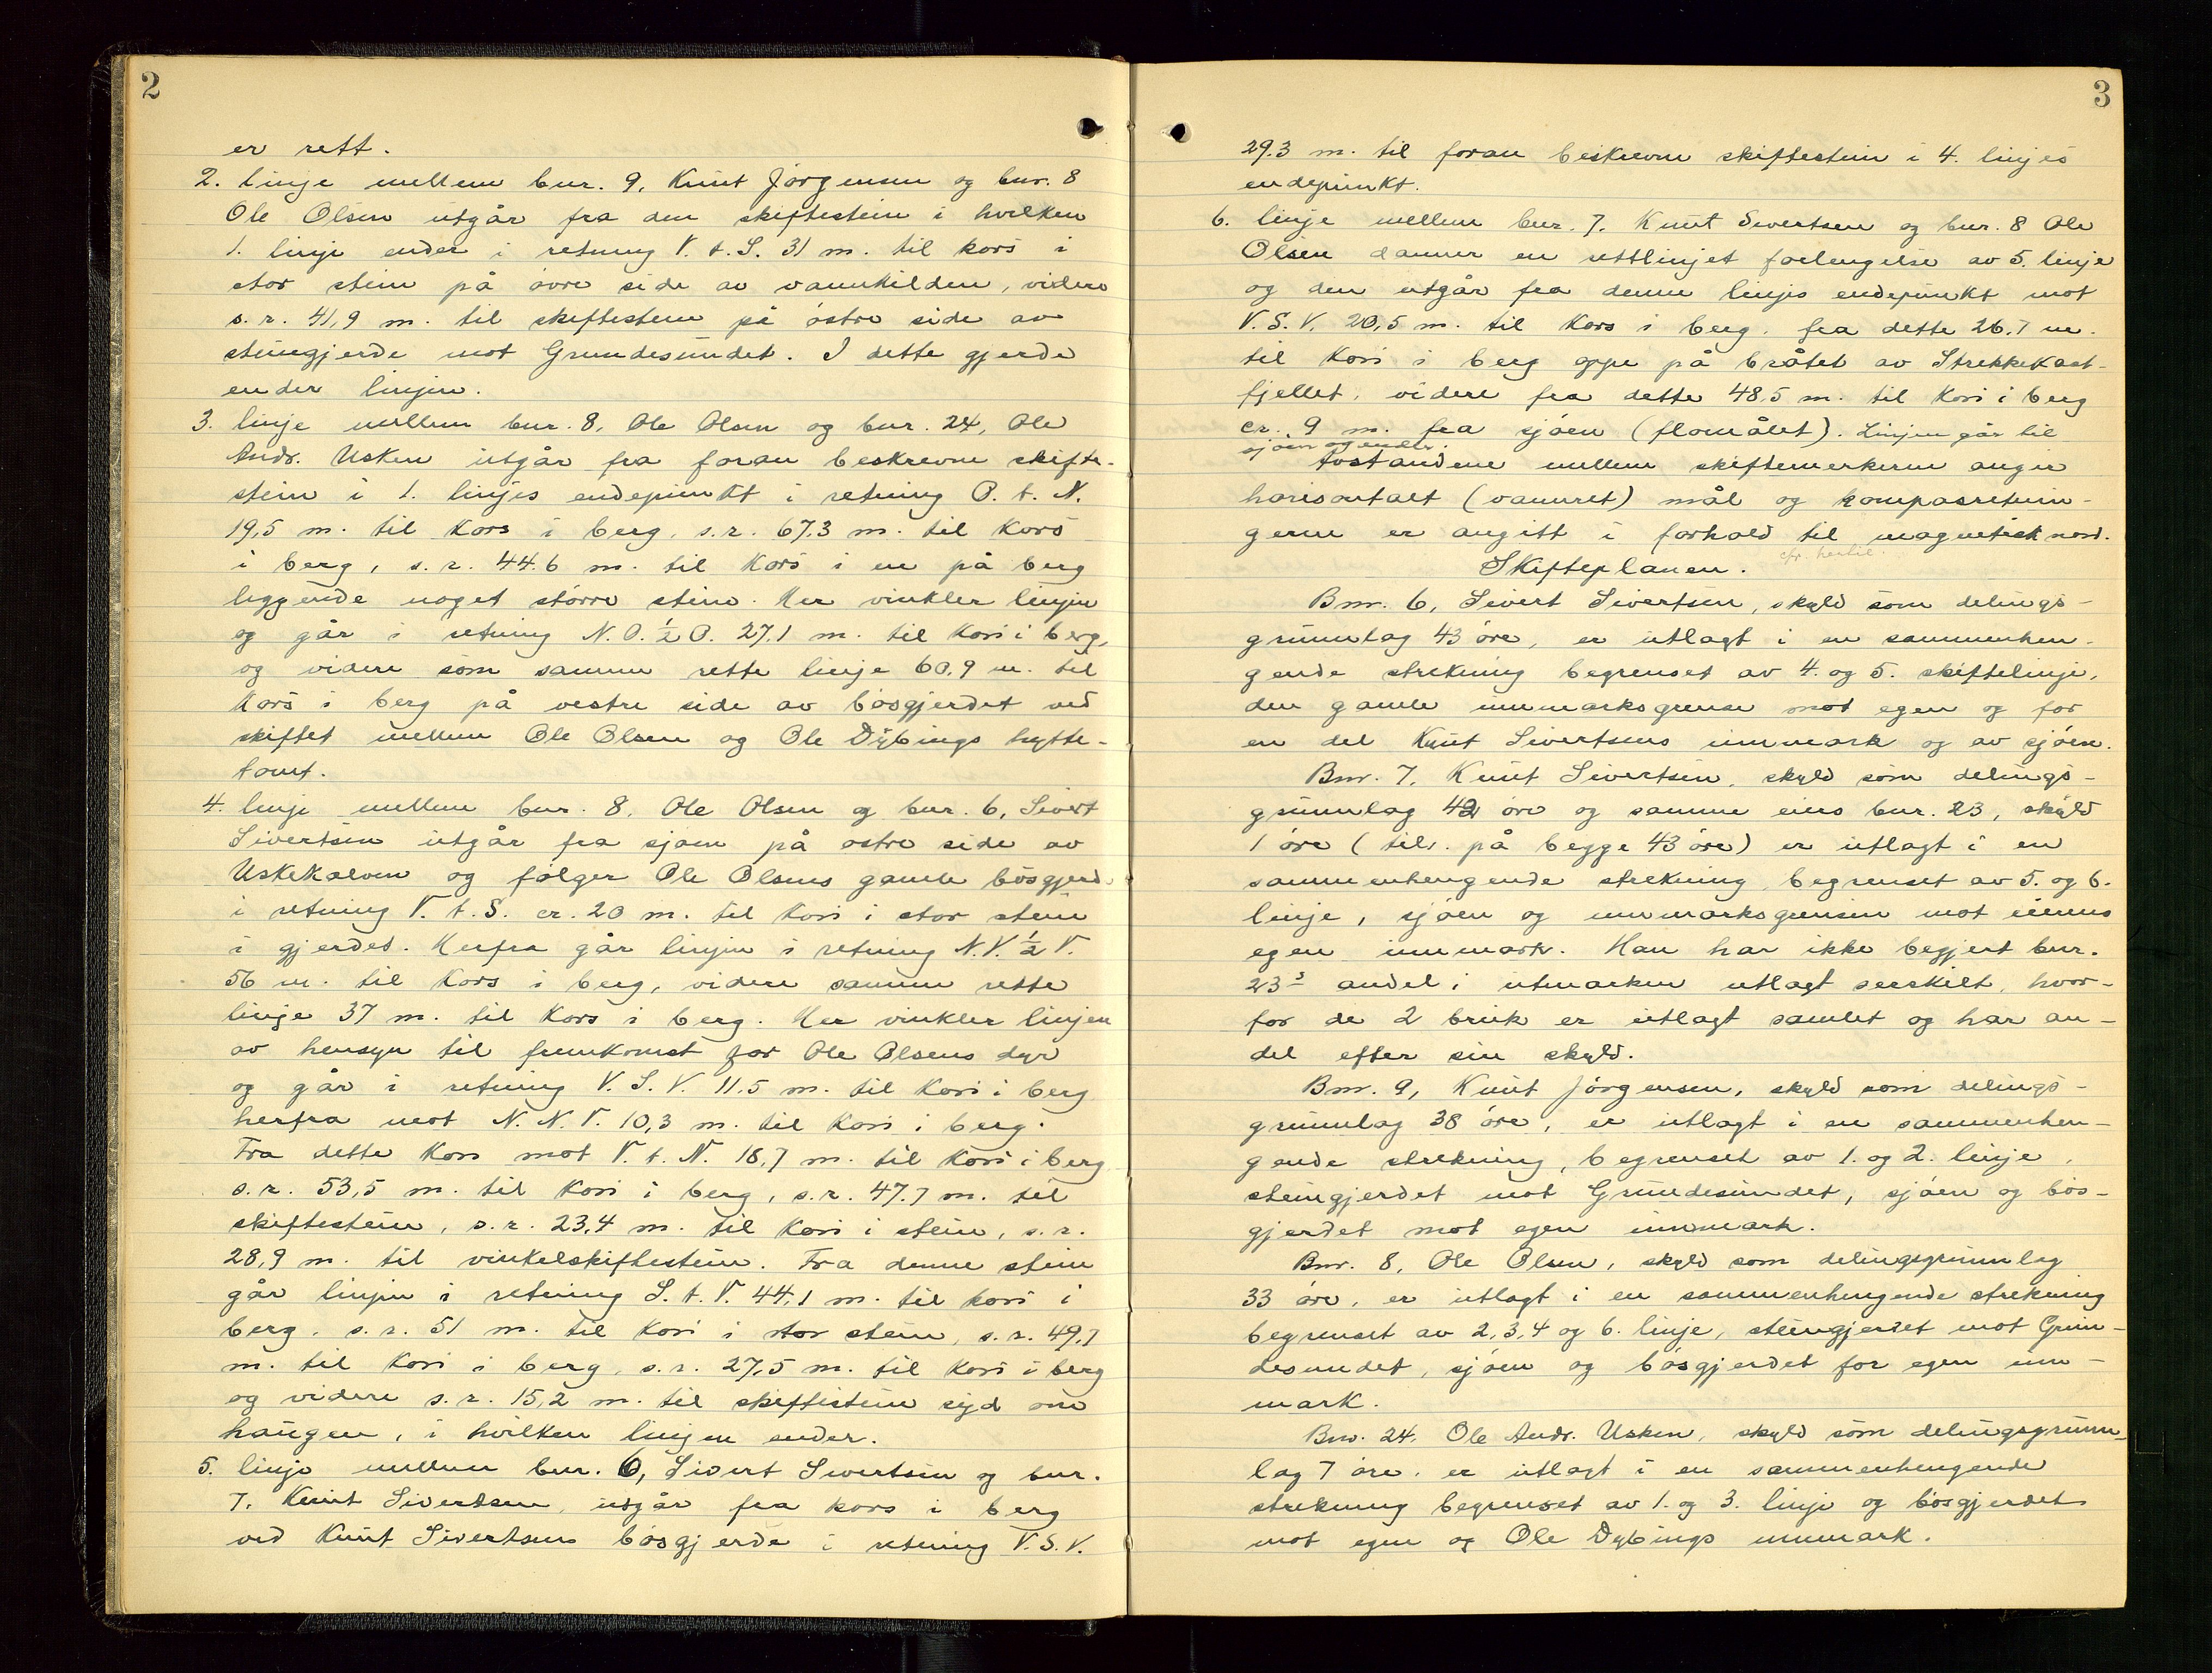 2
er rett.
2. linje mellem bnr. 9, Knut Jørgensen og bnr. 8
Ole Olsen utgår fra den skiftestein i hvilken
1. linje ender i retning V. t. S. 31 m. til kors i
stor stein på øvre side av vannkilden, videre
s. r. 41,9 m. til skiftestein på østre side av
steingjerde mot Grundesundet. I dette gjerde
ender linjen.
3. linje mellem bnr. 8, Ole Olsen og bnr. 24, Ole
Andr. Usken utgår fra foran beskrevne skifte-
stein i 1. linjes endepunkt i retning O. t. N.
19,5 m. til kors i berg, s.r. 67,3 m. til kors
i berg, s.r. 44.6 m. til kors i en på berg
liggende noget større stein. Her vinkler linjen
og går i retning N.O.½O. 27,1 m. til kors i berg,
og videre som samme rette linje 60,9 m. til
kors i berg på vestre side av bøsgjerdet ved
skiftet mellem Ole Olsen og Ole Dybings hytte-
tomt.
4. linje mellem bnr. 8, Ole Olsen og bnr. 6, Sivert
Sivertsen utgår fra sjøen på østre side av
Uskekalven og følger Ole Olsens gamle bøsgjerde
i retning V. t. S. cr. 20 m. til kors i stor stein
i gjerdet. Herfra går linjen i retning N.V.½V.
56 m. til kors i berg, videre samme rette
linje 37 m. til kors i berg. Her vinkler linjen
av hensyn til fremkomst for Ole Olsens dyr
og går i retning V.S.V. 11,5 m. til kors i berg
herfra mot N.N.V. 10,3 m. til kors i berg.
Fra dette kors mot V. t. N. 18,7 m. til kors i berg
s.r. 53,5 m. til kors i berg, s.r. 47.7 m. til
skiftestein, s.r. 23,4 m. til kors i stein, s.r.
28,9 m. til vinkelskiftestein. Fra denne stein
går linjen i retning S. t. V. 44,1 m. til kors i
berg, s.r. 51 m. til kors i stor stein, s.r. 49,7
m. til kors i berg, s.r. 27,5 m. til kors i berg
og videre s.r. 15,2 m. til skiftestein syd om
haugen, i hvilken linjen ender.
5. linje mellem bnr. 6, Sivert Sivertsen og bnr.
7, Knut Sivertsen utgår fra kors i berg
ved Knut Sivertsens bøsgjerde i retning V.S.V.
3
29.3 m. til foran beskrevne skiftestein i 4. linjes
endepunkt.
6. linje mellem bnr. 7, Knut Sivertsen og bnr. 8 Ole
Olsen danner en rettlinjet forlengelse av 5. linje
og den utgår fra denne linjes endepunkt mot
V.S.V. 20,5 m. til kors i berg, fra dette 26,7 m.
til kors i berg oppe på bråtet av Strekkekast-
fjellet, videre fra dette 48,5 m. til kors i berg
cr. 9 m. fra sjøen (flomålet). Linjen går til
sjøen og ender.
Avstandene mellem skiftemerkerne angir
horisontalt (vannret) mål og kompasretnin-
gerne er angitt i forhold til magnetisk nord.
cfr. hertil.
Skifteplanen.
Bnr. 6, Sivert Sivertsen, skyld som delings-
grunnlag 43 øre, er utlagt i en sammenhen-
gende strekning begrenset av 4. og 5. skiftelinje,
den gamle innmarksgrense mot egen og for
en del Knut Sivertsens innmark og av sjøen.
Bnr. 7, Knut Sivertsen, skyld som delings-
grunnlag 42 øre og samme eiers bnr. 23, skyld
1 øre (tils. på begge 43 øre) er utlagt i en
sammenhengende strekning begrenset av 5. og 6.
linje, sjøen og innmarksgrensen mot eierens
egen innmark. Han har ikke begjert bnr.
23s andel i utmarken utlagt serskilt, hvor-
for de 2 bruk er utlagt samlet og har an-
del efter sin skyld.
Bnr. 9, Knut Jørgensen, skyld som delings-
grunnlag 38 øre, er utlagt i en sammenhen-
gende strekning, begrenset av 1. og 2. linje,
steingjerdet mot Grundesundet, sjøen og bøs-
gjerdet mot egen innmark.
Bnr. 8, Ole Olsen, skyld som delingsgrunnlag
33 øre, er utlagt i en sammenhengende strekning
begrenset av 2, 3, 4 og 6. linje, steingjerdet mot Grun-
desundet, sjøen og bøsgjerdet for egen inn-
mark.
Bnr. 24, Ole Andr. Usken, skyld som delingsgrunn-
lag 7 øre, er utlagt i en sammenhengende
strekning begrenset av 1. og 3. linje og bøsgjerdet
mot egen og Ole Dybings innmark.